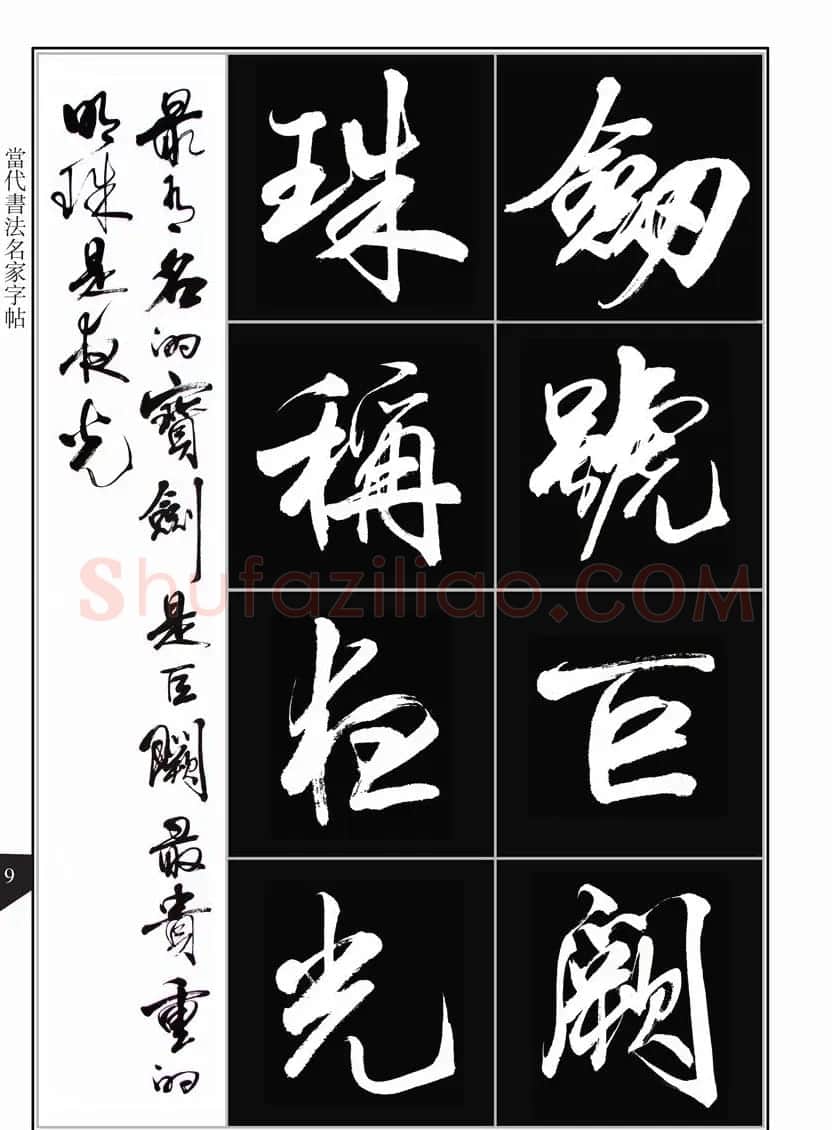 劒號巨闕
珠稱夜光
最有名的寶劍是巨闕最貴重的
明珠是夜光
當代書法名家字帖
9
Shufaziliao.COM